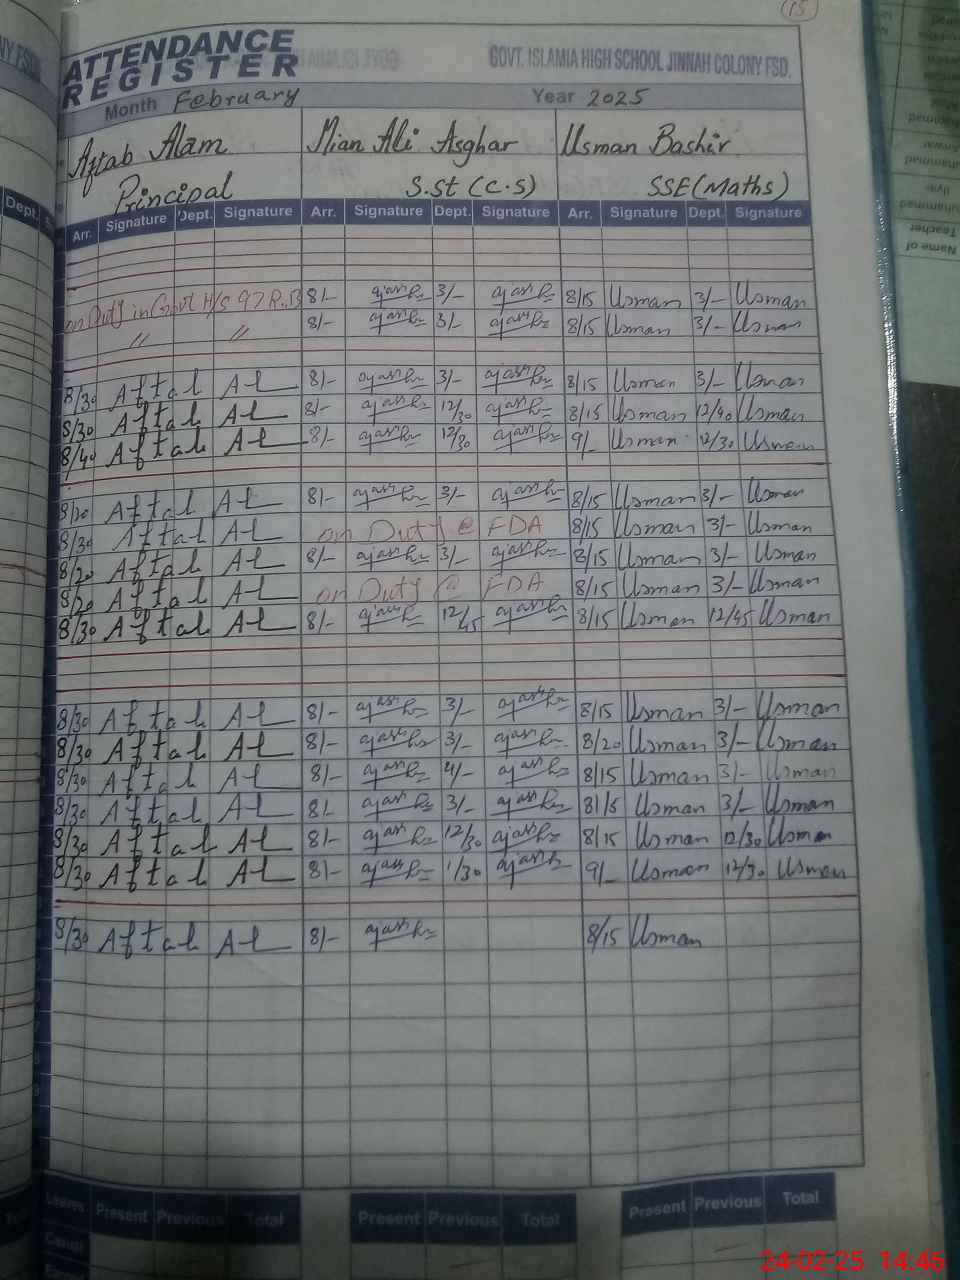 15
ATTENDANCE
REGISTER
GOVT. ISLAMIA HIGH SCHOOL JINNAH COLONY FSD.
Month February Year 2025
Aftab Alam Mian Ali Asghar Usman Bashir
Principal S.St (C.S) SSE (Maths)
Arr. Signature Dept. Signature Arr. Signature Dept. Signature Arr. Signature Dept. Signature
on Duty in Govt H/S 97 R.B 8/- 3/- 8/15 Usman 3/- Usman
〃 〃 8/- 3/- 8/15 Usman 3/- Usman
8/30 Aftab Al 8/- 3/- 8/15 Usman 3/- Usman
8/30 Aftab Al 8/- 12/30 8/15 Usman 12/40 Usman
8/40 Aftab Al 8/- 12/30 9/- Usman 12/30 Usman
Aftab Al 8/- 3/- 8/15 Usman 3/- Usman
8/30 Aftab Al on Duty @ FDA 8/15 Usman 3/- Usman
8/20 Aftab Al 8/- 3/- 8/15 Usman 3/- Usman
8/20 Aftab Al on Duty @ FDA 8/15 Usman 3/- Usman
8/30 Aftab Al 8/- 12/45 8/15 Usman 12/45 Usman
8/30 Aftab Al 8/- 3/- 8/15 Usman 3/- Usman
8/30 Aftab Al 8/- 3/- 8/20 Usman 3/- Usman
8/30 Aftab Al 8/- 4/- 8/15 Usman 3/- Usman
8/30 Aftab Al 8/- 3/- 8/15 Usman 3/- Usman
8/30 Aftab Al 8/- 12/30 8/15 Usman 12/30 Usman
8/30 Aftab Al 8/- 1/30 9/- Usman 12/30 Usman
8/30 Aftab Al 8/- 8/15 Usman
Leaves Present Previous Total Present Previous Total Present Previous Total
24-02-25 14:46
Dept.
Name of
Teacher